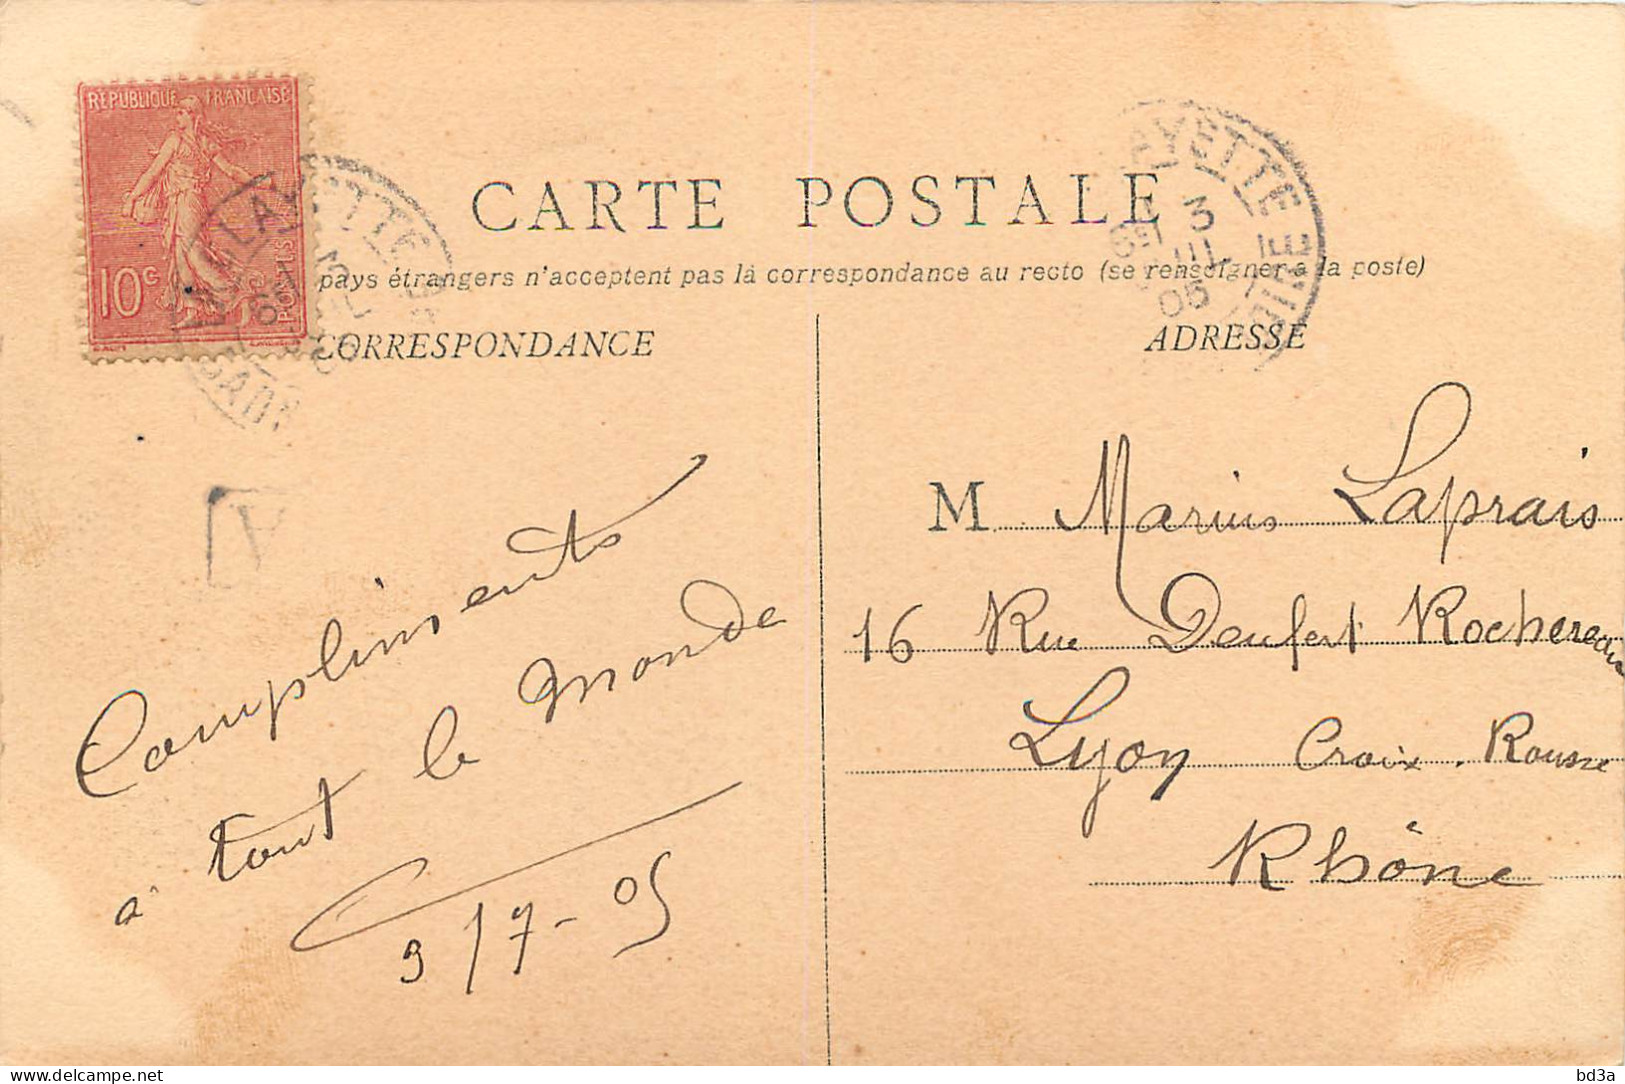 RÉPUBLIQUE FRANÇAISE
10c
POSTES
CARTE POSTALE
pays étrangers n'acceptent pas la correspondance au recto (se renseigner à la poste)
CORRESPONDANCE
ADRESSE
3
05
A
Compliments
à tout le monde
3/7-05
M Marius Laprais
16 Rue Denfert Rochereau
Lyon Croix. Rousse
Rhône
www.delcampe.net
bd3a